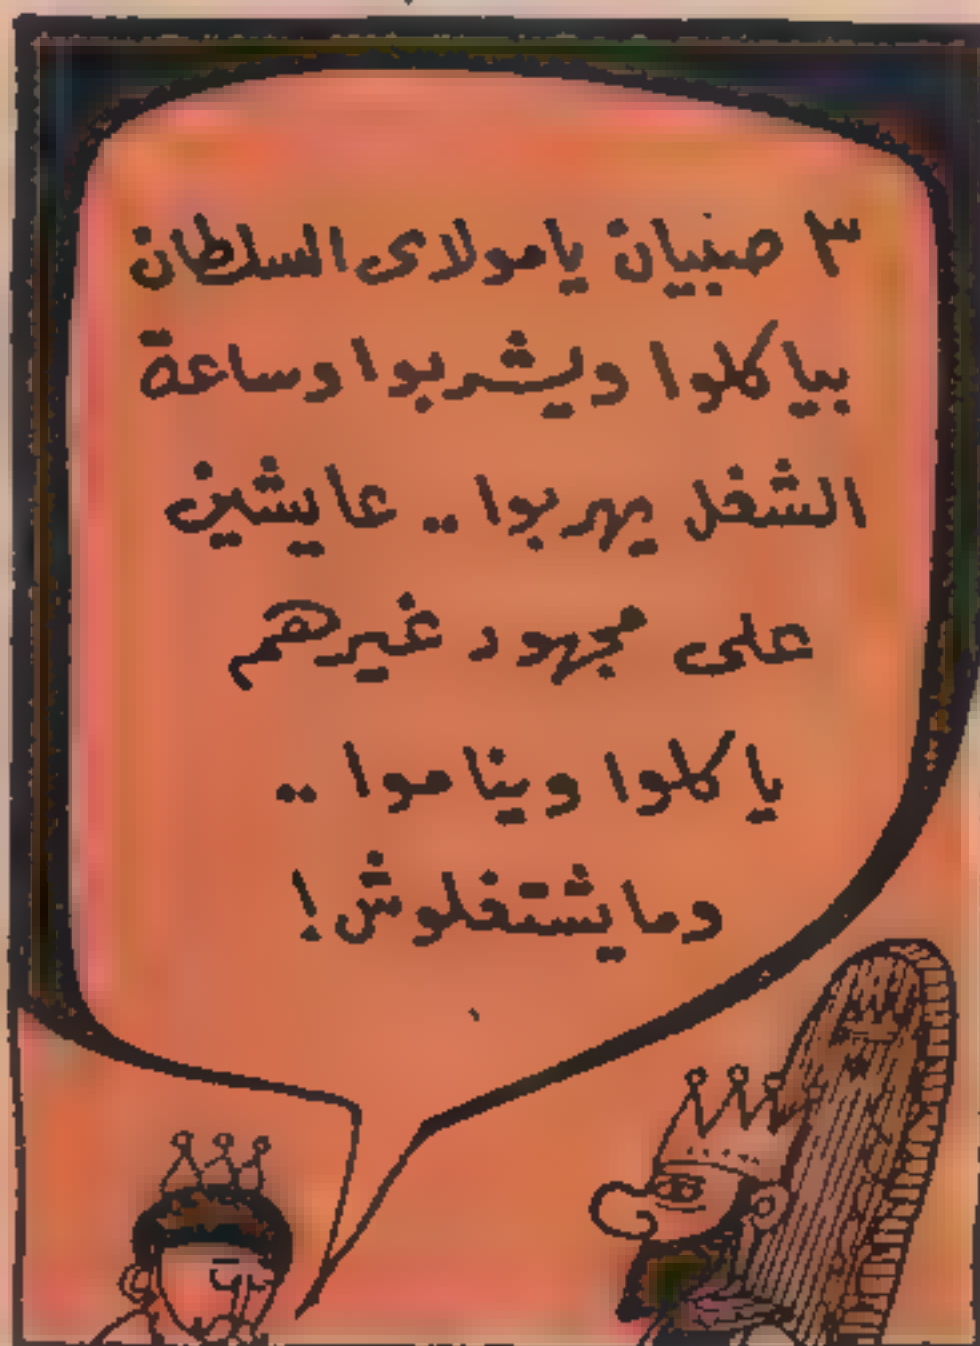 ٣ صبيان يا مولاى السلطان
بياكلوا ويشربوا وساعة
الشغل يهربوا .. عايشين
على مجهود غيرهم
ياكلوا ويناموا ..
وما يشتغلوش !